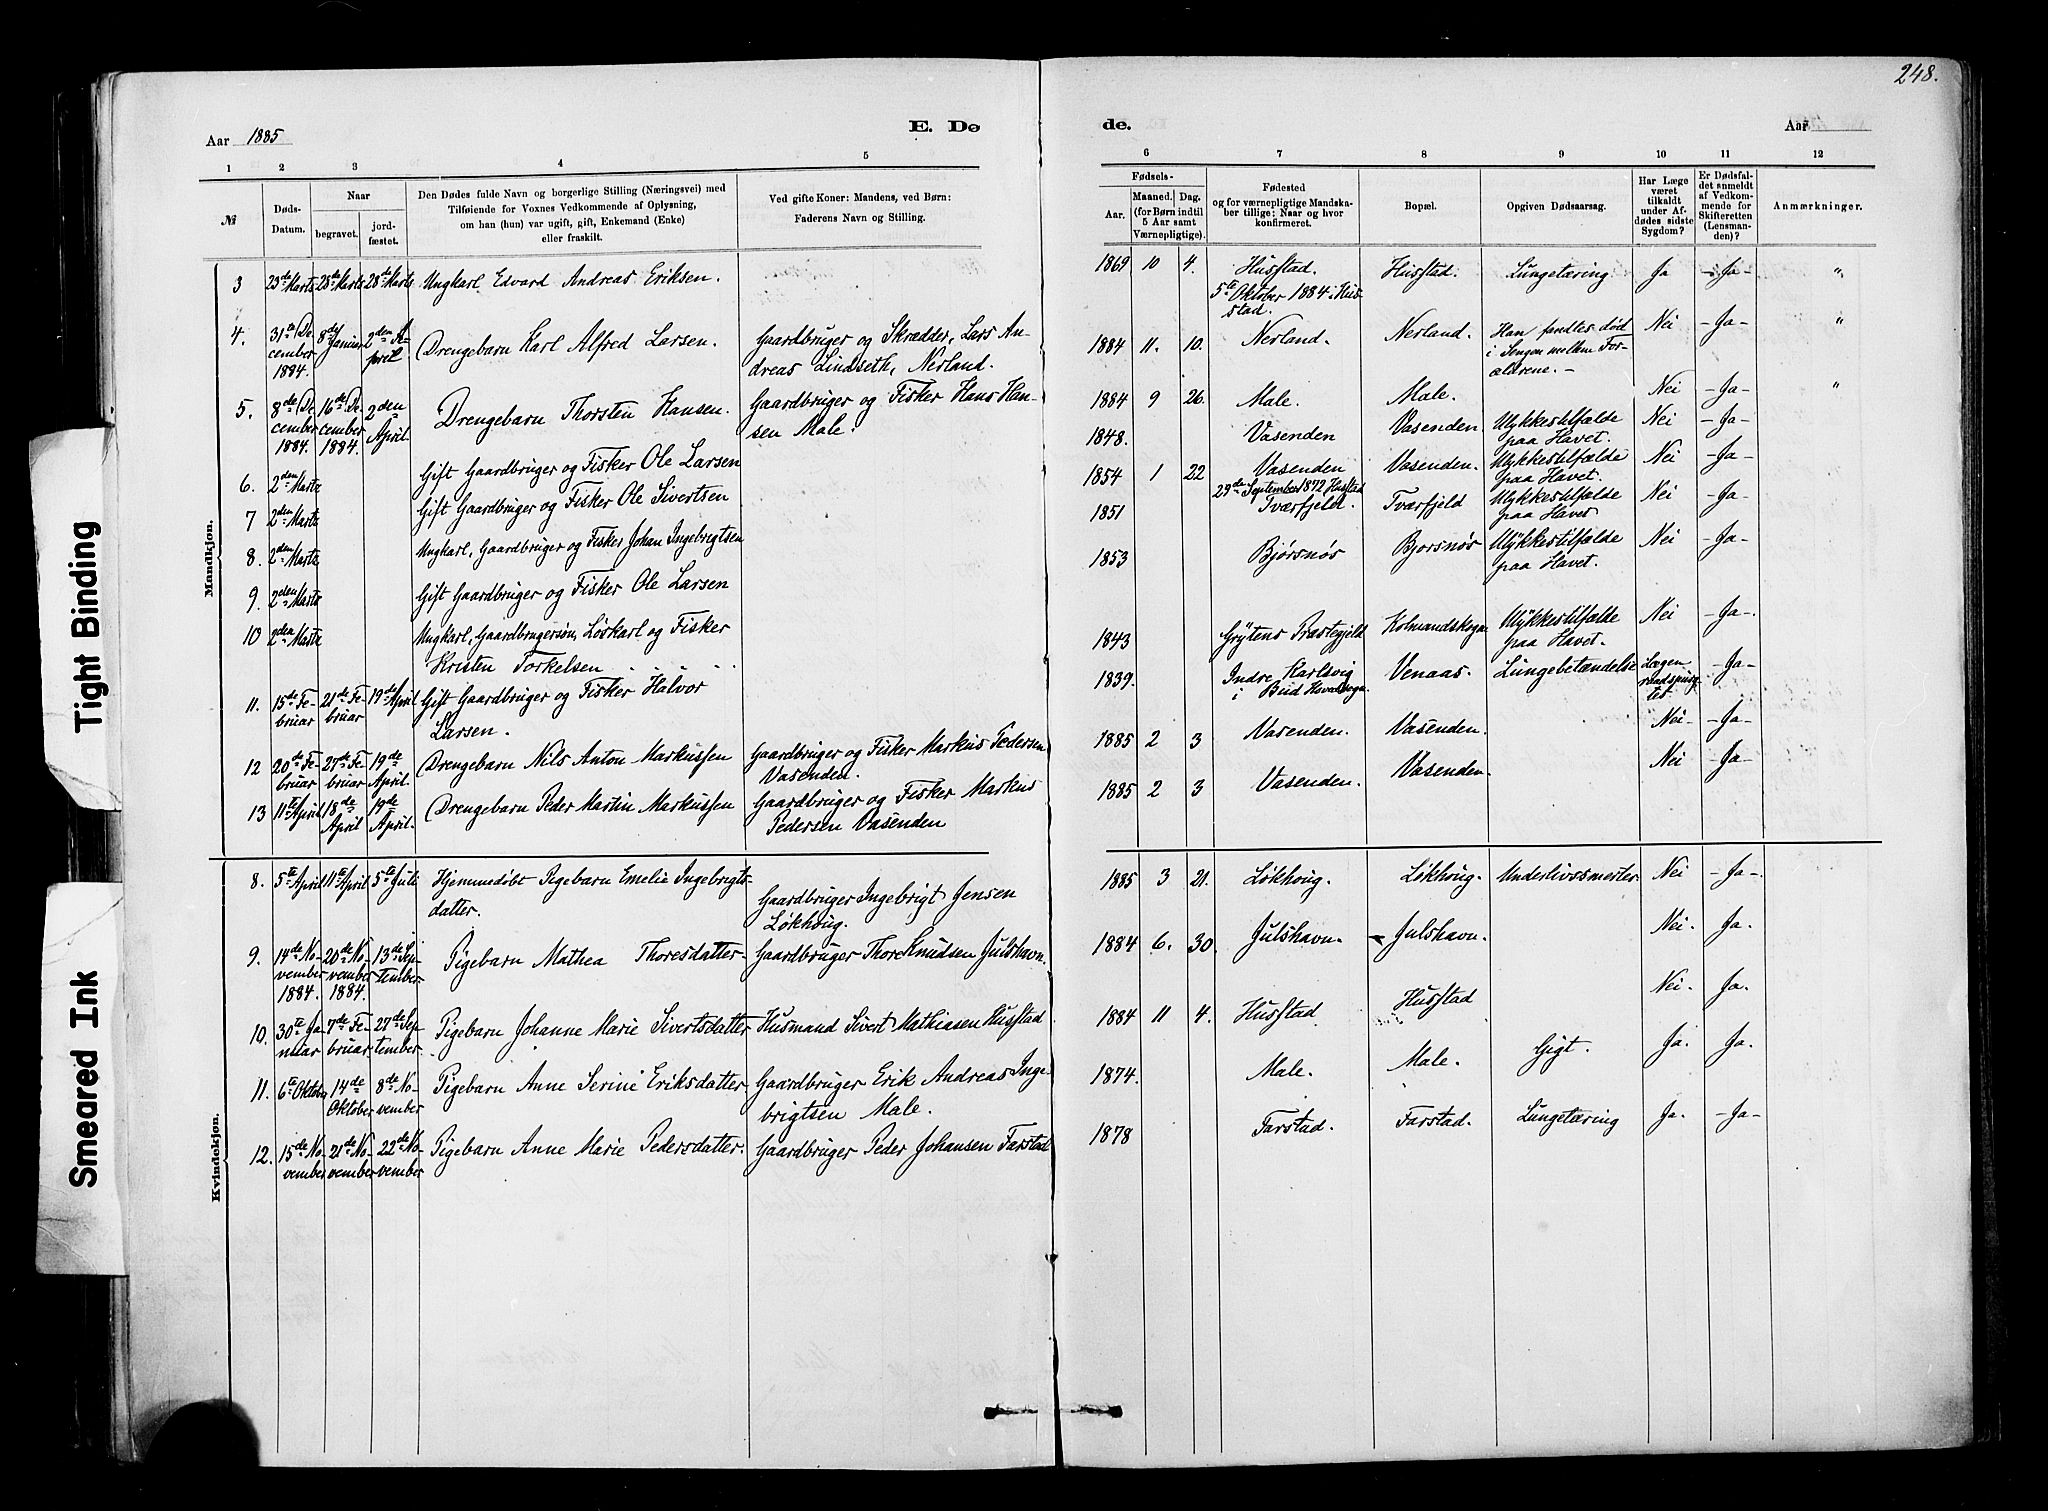 248.
Aar 1885
E. Dø
de.
Aar
1 2 3 4 5
6 7 8 9 10 11 12
№
Døds-
Datum.
Naar
begravet.
jord-
fæstet.
Den Dødes fulde Navn og borgerlige Stilling (Næringsvei) med
Tilføiende for Voxnes Vedkommende af Oplysning,
om han (hun) var ugift, gift, Enkemand (Enke)
eller fraskilt.
Ved gifte Koner: Mandens, ved Børn:
Faderens Navn og Stilling.
Fødsels-
Aar.
Maaned. Dag.
(for Børn indtil
5 Aar samt
Værnepligtige).
Fødested
og for værnepligtige Mandska-
ber tillige: Naar og hvor
konfirmeret.
Bopæl.
Opgiven Dødsaarsag.
Har Læge
været
tilkaldt
under Af-
dødes sidste
Sygdom?
Er Dødsfal-
det anmeldt
af Vedkom-
mende for
Skifteretten
(Lensman-
den)?
Anmærkninger.
Mandkjøn.
3 23de Marts 28de Marts 28de Marts Ungkarl Edvard Andreas Eriksen.
1869 10 4. Hustad. Hustad. Lungetæring. Ja - Ja - "
5te Oktober 1884 i Hus-
stad.
4. 31te De-
cember
1884.
8de
Januar
2den A-
pril
Drengebarn Karl Alfred Larsen.
Gaardbruger og Skrædder, Lars An-
dreas Lindseth, Nerland.
1884 11. 10. Nerland. Nerland. Han fandtes død
i Sengen mellem For-
ældrene. -
Nei - Ja - "
5. 8de De-
cember
1884.
16de De-
cember
1884.
2den
April
Drengebarn Thorsten Hansen.
Gaardbruger og Fisker Hans Han-
sen Male.
1884 9 26. Male. Male. Nei - Ja - "
6. 2den Marts Gift Gaardbruger og Fisker Ole Larsen
1848. Vasenden Vasenden. Ulykkestilfælde
paa Havet.
Nei - Ja -
7 2den Marts Gift Gaardbruger og Fisker Ole Sivertsen
1854 1 22 Vasenden Vasenden. Ulykkestilfælde
paa Havet.
Nei - Ja -
29de September 1872 Hustad
8. 2den Marts Ungkarl, Gaardbruger og Fisker Johan Ingebrigtsen
1851 Tværfjeld. Tværfjeld Ulykkestilfælde
paa Havet
Nei - Ja -
9. 2den Marts Gift Gaardbruger og Fisker Ole Larsen
1853 Bjørsnøs Bjørsnøs Ulykkestilfælde
paa Havet.
Nei - Ja -
10 2den Marts Ungkarl, Gaardbrugersøn, Løskarl og Fisker
Kristen Torkelsen
1843 Grytens Præstegjeld Ulykkestilfælde
paa Havet.
Nei - Ja -
11. 15de Fe-
bruar
21de Fe-
bruar
19de April
Gift Gaardbruger og Fisker Halvor
Larsen.
1839. Indre Karlsvig
i Bud
Venaas. Lungebetændelse Lægen
raadspurg-
tes
- Ja -
12 20de Fe-
bruar
27de Fe-
bruar
19de
April.
Drengebarn Nils Anton Markussen
Gaardbruger og Fisker Markus Pedersen
Vasenden.
1885 2 3 Vasenden. Vasenden. Nei - - Ja -
13 11te April 18de
April
19de
April.
Drengebarn Peder Martin Markussen
Gaardbruger og Fisker Markus
Pedersen Vasenden
1885 2 3 Vasenden. Vasenden. Nei - Ja -
Kvindekjøn.
8. 5te April 11te April 5te Juli Hjemmedøbt Pigebarn Emelie Ingebrigts-
datter.
Gaardbruger Ingebrigt Jensen
Løkhoug.
1885 3 21. Løkhoug. Løkhoug. Underlivssmerter Nei - Ja -
9. 14de No-
vember
1884.
20de No-
vember
1884.
13de Sep-
tember
Pigebarn Mathea Thoresdatter
Gaardbruger Thore Knudsen Julshavn.
1884 6. 30. Julshavn. Julshavn. Nei. Ja.
10. 30te Ja-
nuar
7de Fe-
bruar
27de Sep-
tember
Pigebarn Johanne Marie Sivertsdatter
Husmand Sivert Mathiasen Hustad
1884 11 4. Hustad Hustad Nei. Ja.
11. 6te Oktober 14de
Oktober
8de No-
vember
Pigebarn Anne Serine Eriksdatter
Gaardbruger Erik Andreas Inge-
brigtsen Male.
1874. Male. Male. Gigt. Ja. Ja.
12. 15de No-
vember
21de No-
vember
22de No-
vember
Pigebarn Anne Marie Pedersdatter.
Gaardbruger Peder Johansen Farstad
1878 Farstad. Farstad. Lungetæring Ja. - Ja -
Tight Binding
Smeared Ink